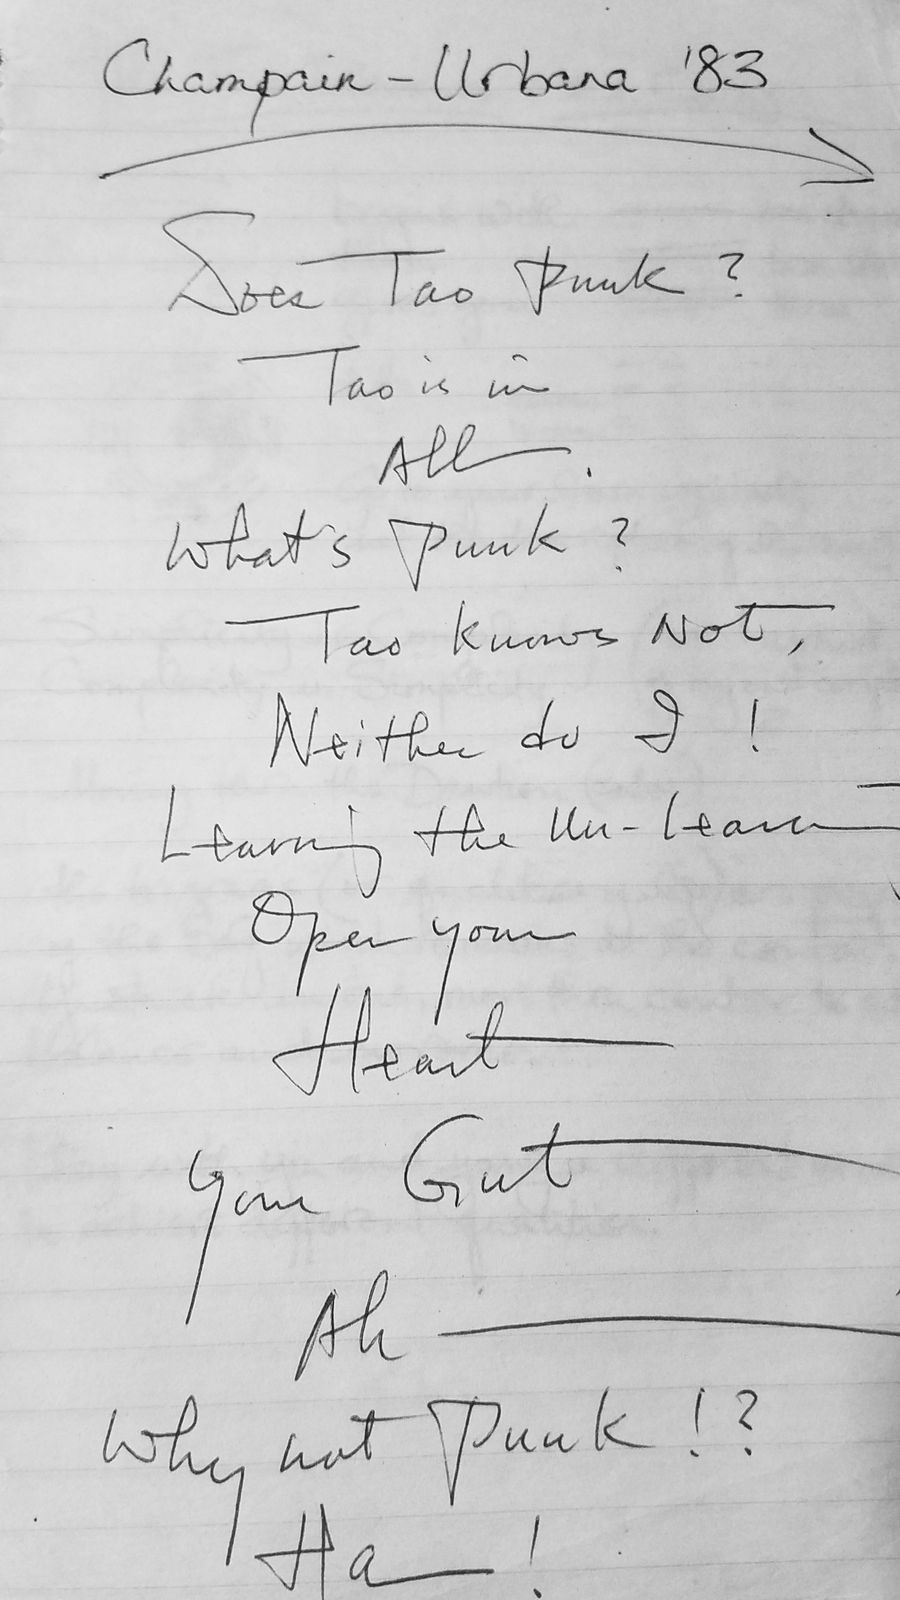 Champain - Urbana '83
Does Tao Punk?
Tao is in
All.
What's Punk?
Tao knows Not,
Neither do I!
Learning the Un-learn
Open your
Heart
your Gut
Ah
Why not Punk!?
Ha!